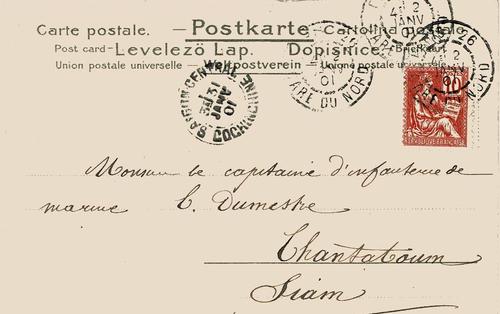 Carte postale. — Postkarte — Cartolina postale
Post card — Levelező Lap. Dopisnice. — Briefkart
Union postale universelle — Weltpostverein — Unione postale universale
GARE DU NORD
4E 2
JANV
01
SAIGON-CENTRAL COCHINCHINE
3E 31
JANV
01
10
REPUBLIQUE FRANÇAISE
Monsieur le capitaine d'infanterie de
marine C. Dumestre
Chantaboum
Siam